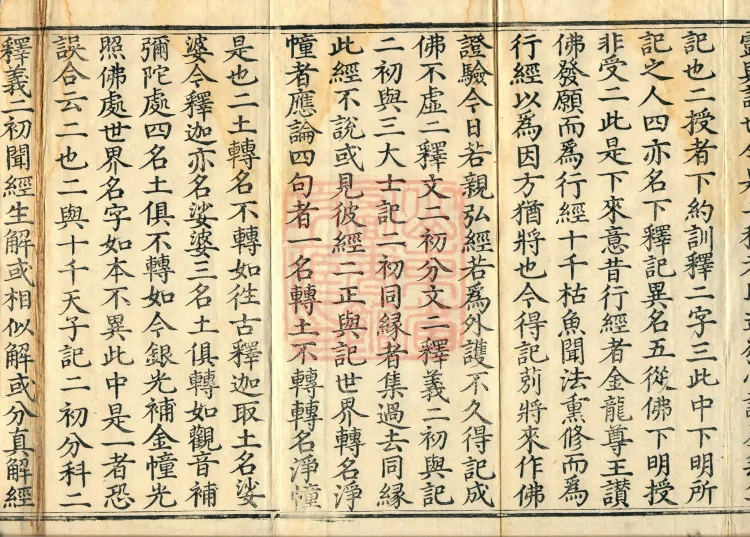 記也二授者下約訓釋二字三此中下明所
記之人四亦名下釋記異名五從佛下明授
非受二此是下來意昔行經者金龍尊王讃
佛發願而為行經十千枯魚聞法熏修而為
行經以為因方猶將也今得記莂將來作佛
證驗今日若親弘經若為外護不久得記成
佛不虛二釋文二初分文二釋義二初與記
二初與三大士記二初同縁者集過去同縁
此經不說或見彼經二正與記世界轉名淨
幢者應論四句者一名轉土不轉轉名淨幢
是也二土轉名不轉如徃古釋迦取土名娑
婆今釋迦亦名娑婆三名土俱轉如觀音補
彌陀處四名土俱不轉如今銀光補金幢光
照佛處世界名字如本不異此中是一者恐
誤合云二也二與十千天子記二初分科二
釋義二初聞經生解或相似解或分真解經